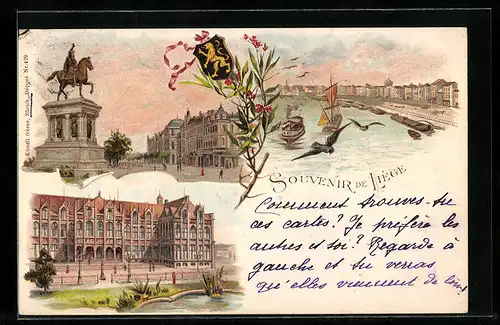 Künzli frères, Zürich, Déposé Nr. 479
SOUVENIR DE LIÉGE
Comment trouves-tu
ces cartes? Je préfère les
autres et toi? Regarde à
gauche et tu verras
qu'elles viennent de